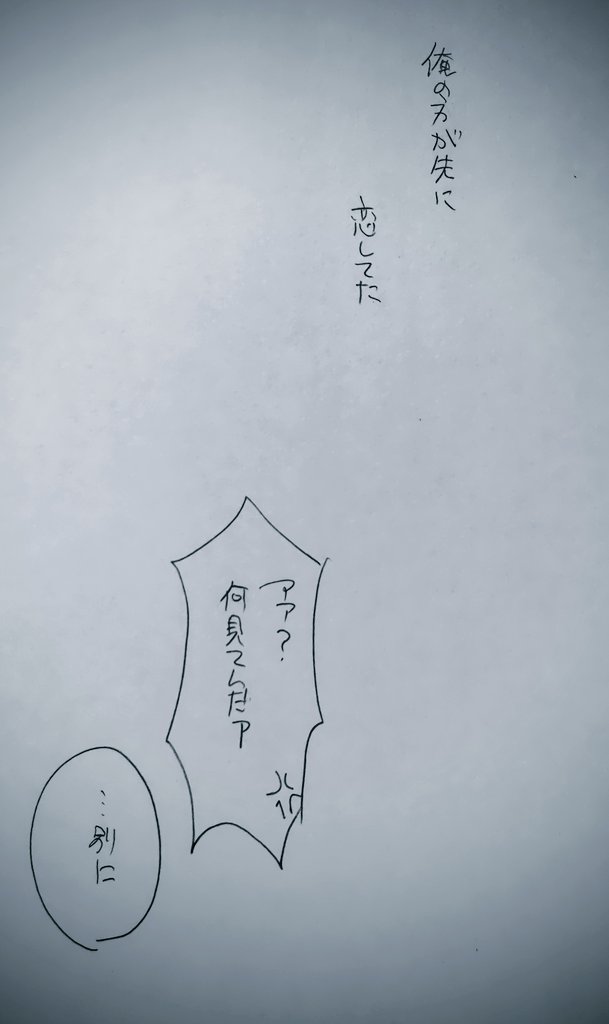 俺の方が先に
恋してた
アア?
何見てんだア
…別に